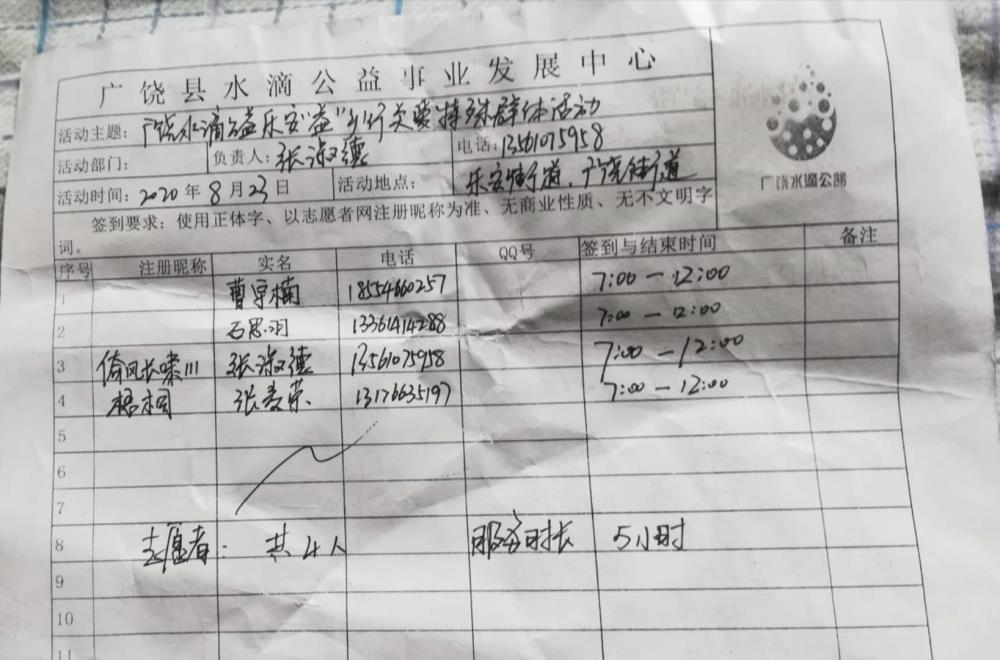 广饶县水滴公益事业发展中心
活动主题：广饶水滴公益乐安"益"行关爱特殊群体活动
活动部门： 负责人：张淑德 电话：13561075958
活动时间：2020年8月23日 活动地点：乐安街道、广饶街道
签到要求：使用正体字、以志愿者网注册昵称为准、无商业性质、无不文明字
词。
广饶水滴公益
序号 注册昵称 实名 电话 QQ号 签到与结束时间 备注
1 曹宇楠 18554660257 7:00—12:00
2 石思羽 13361414288 7:00—12:00
3 倚风长啸111 张淑德 13561075958 7:00—12:00
4 梧桐 张荣 13176635197 7:00—12:00
5
6
7
8 志愿者：共4人 服务时长 5小时
9
10
11